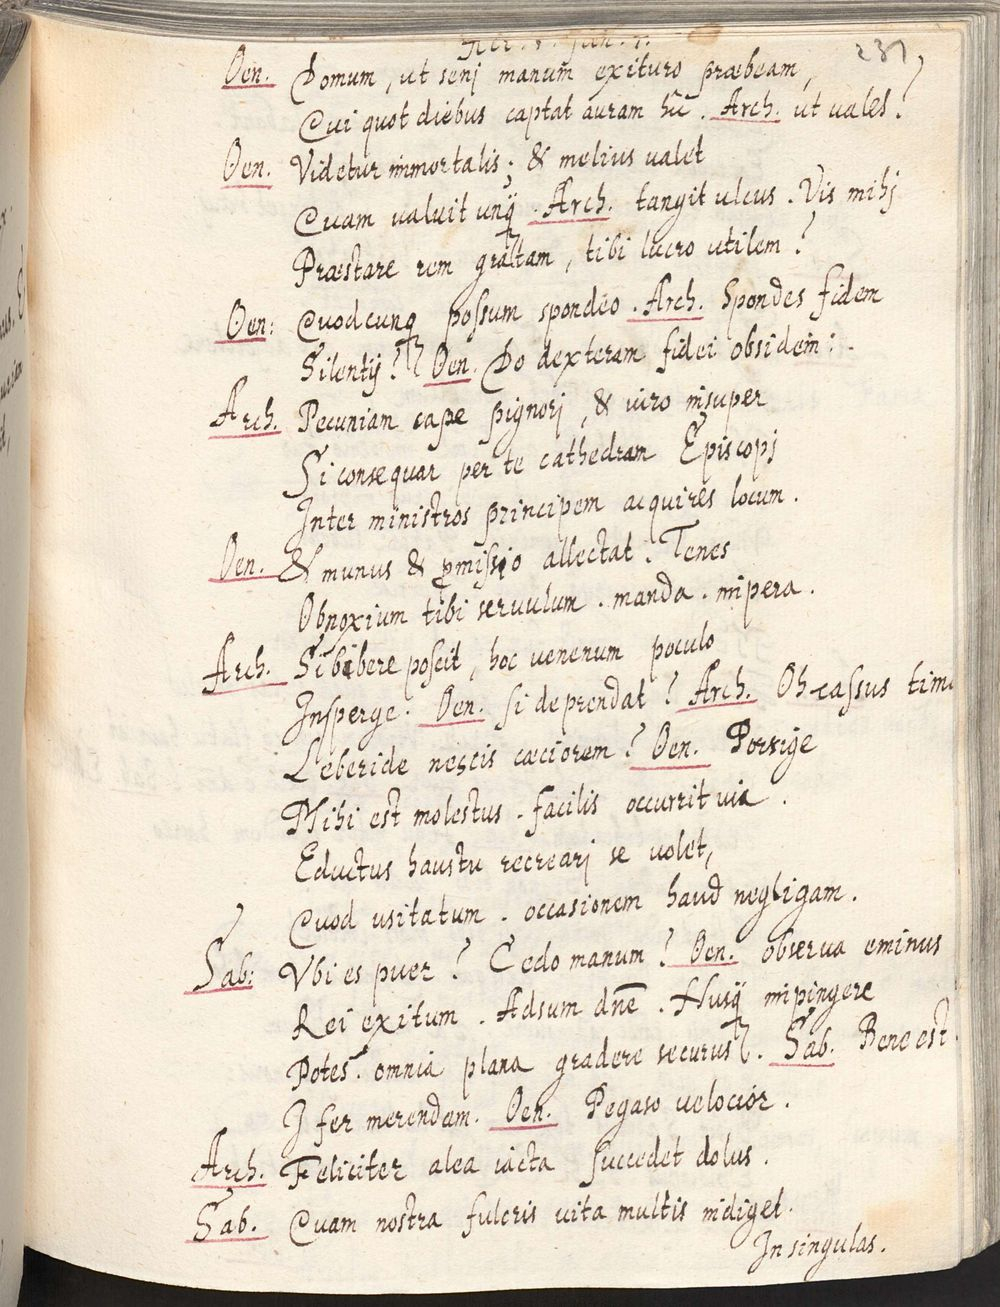 231
Oen. Domum, ut senj manum exituro præbeam,
Cui quot diebus captat auram hîc. Arch. ut vales?
Oen. Videtur immortalis; & melius valet
Quam valuit unq̃. Arch. tangit ulcus. Vis mihj
Præstare rem gratam, tibi lucro utilem?
Oen: Quodcunq possum spondeo. Arch. Spondes fidem
Silentij? Oen. Do dexteram fidei obsidem:
Arch. Pecuniam cape pignorj, & viro insuper
Si consequar per te cathedram Episcopj
Inter ministros principem acquires locum.
Oen. & munus & pmissio allectat. Tenes
Obnoxium tibi servulum. manda. impera.
Arch. Si bibere poscit, hoc venenum poculo
Insperge. Oen. si deprendat? Arch. Oh cassus time
Leberide nescis cæciorem? Oen. Porrige
Mihi est molestus. facilis occurrit via.
Eductus haustu recrearj se volet,
Quod usitatum. occasionem haud negligam.
Sab: Vbi es puer? Cedo manum? Oen. observa eminus
Rei exitum. Adsum dñe. Husq̃ impingere
Potes. omnia plana gradere securus. Sab. Bene est.
I fer merendam. Oen. Pegaso velociòr.
Arch. Feliciter alea iacta succedet dolus.
Sab. Quam nostra fulcris vita multis indiget.
In singulas.